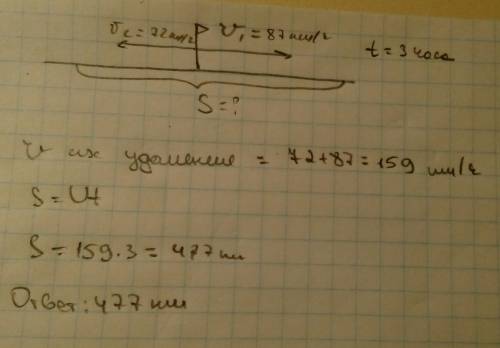 v₂ = 72 км/ч v₁ = 87 км/ч t = 3 часа
S = ?
v их удаление = 72+87=159 км/ч
S = vt
S = 159·3 = 477 км
Ответ: 477 км